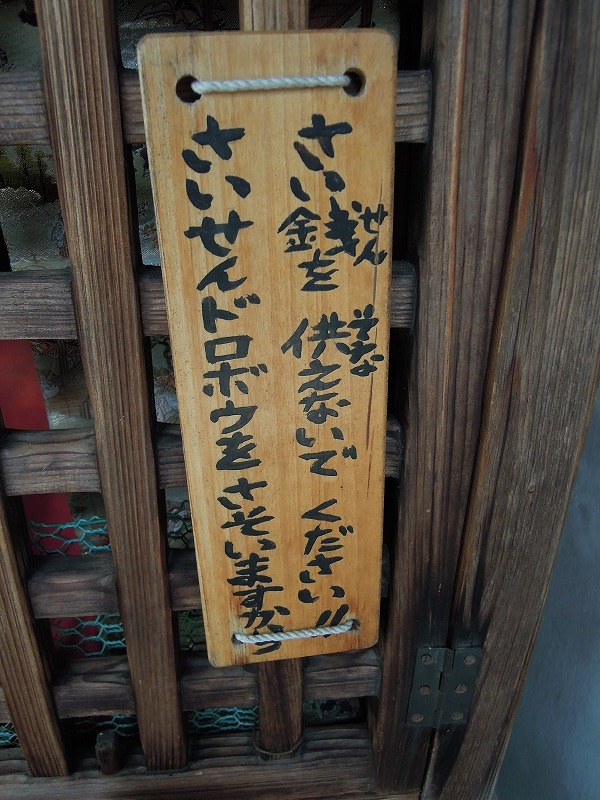 さい銭を供えないでください!!
せん
そな
さいせんドロボウをさそいますから